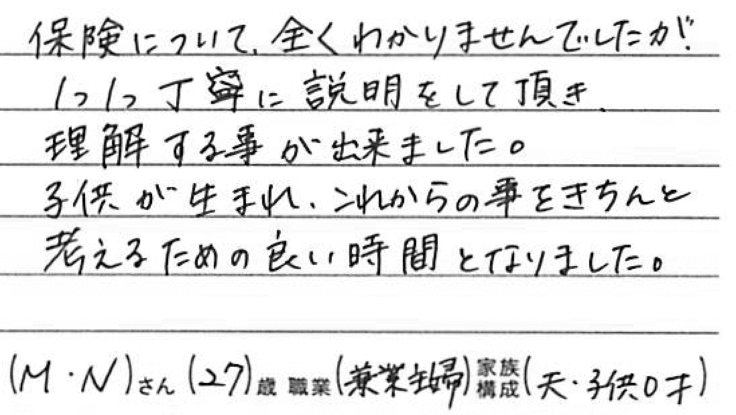 保険について、全くわかりませんでしたが、
1つ1つ丁寧に説明をして頂き、
理解する事が出来ました。
子供が生まれ、これからの事をきちんと
考えるための良い時間となりました。
(M・N)さん(27)歳 職業(兼業主婦)家族構成(夫・子供0才)